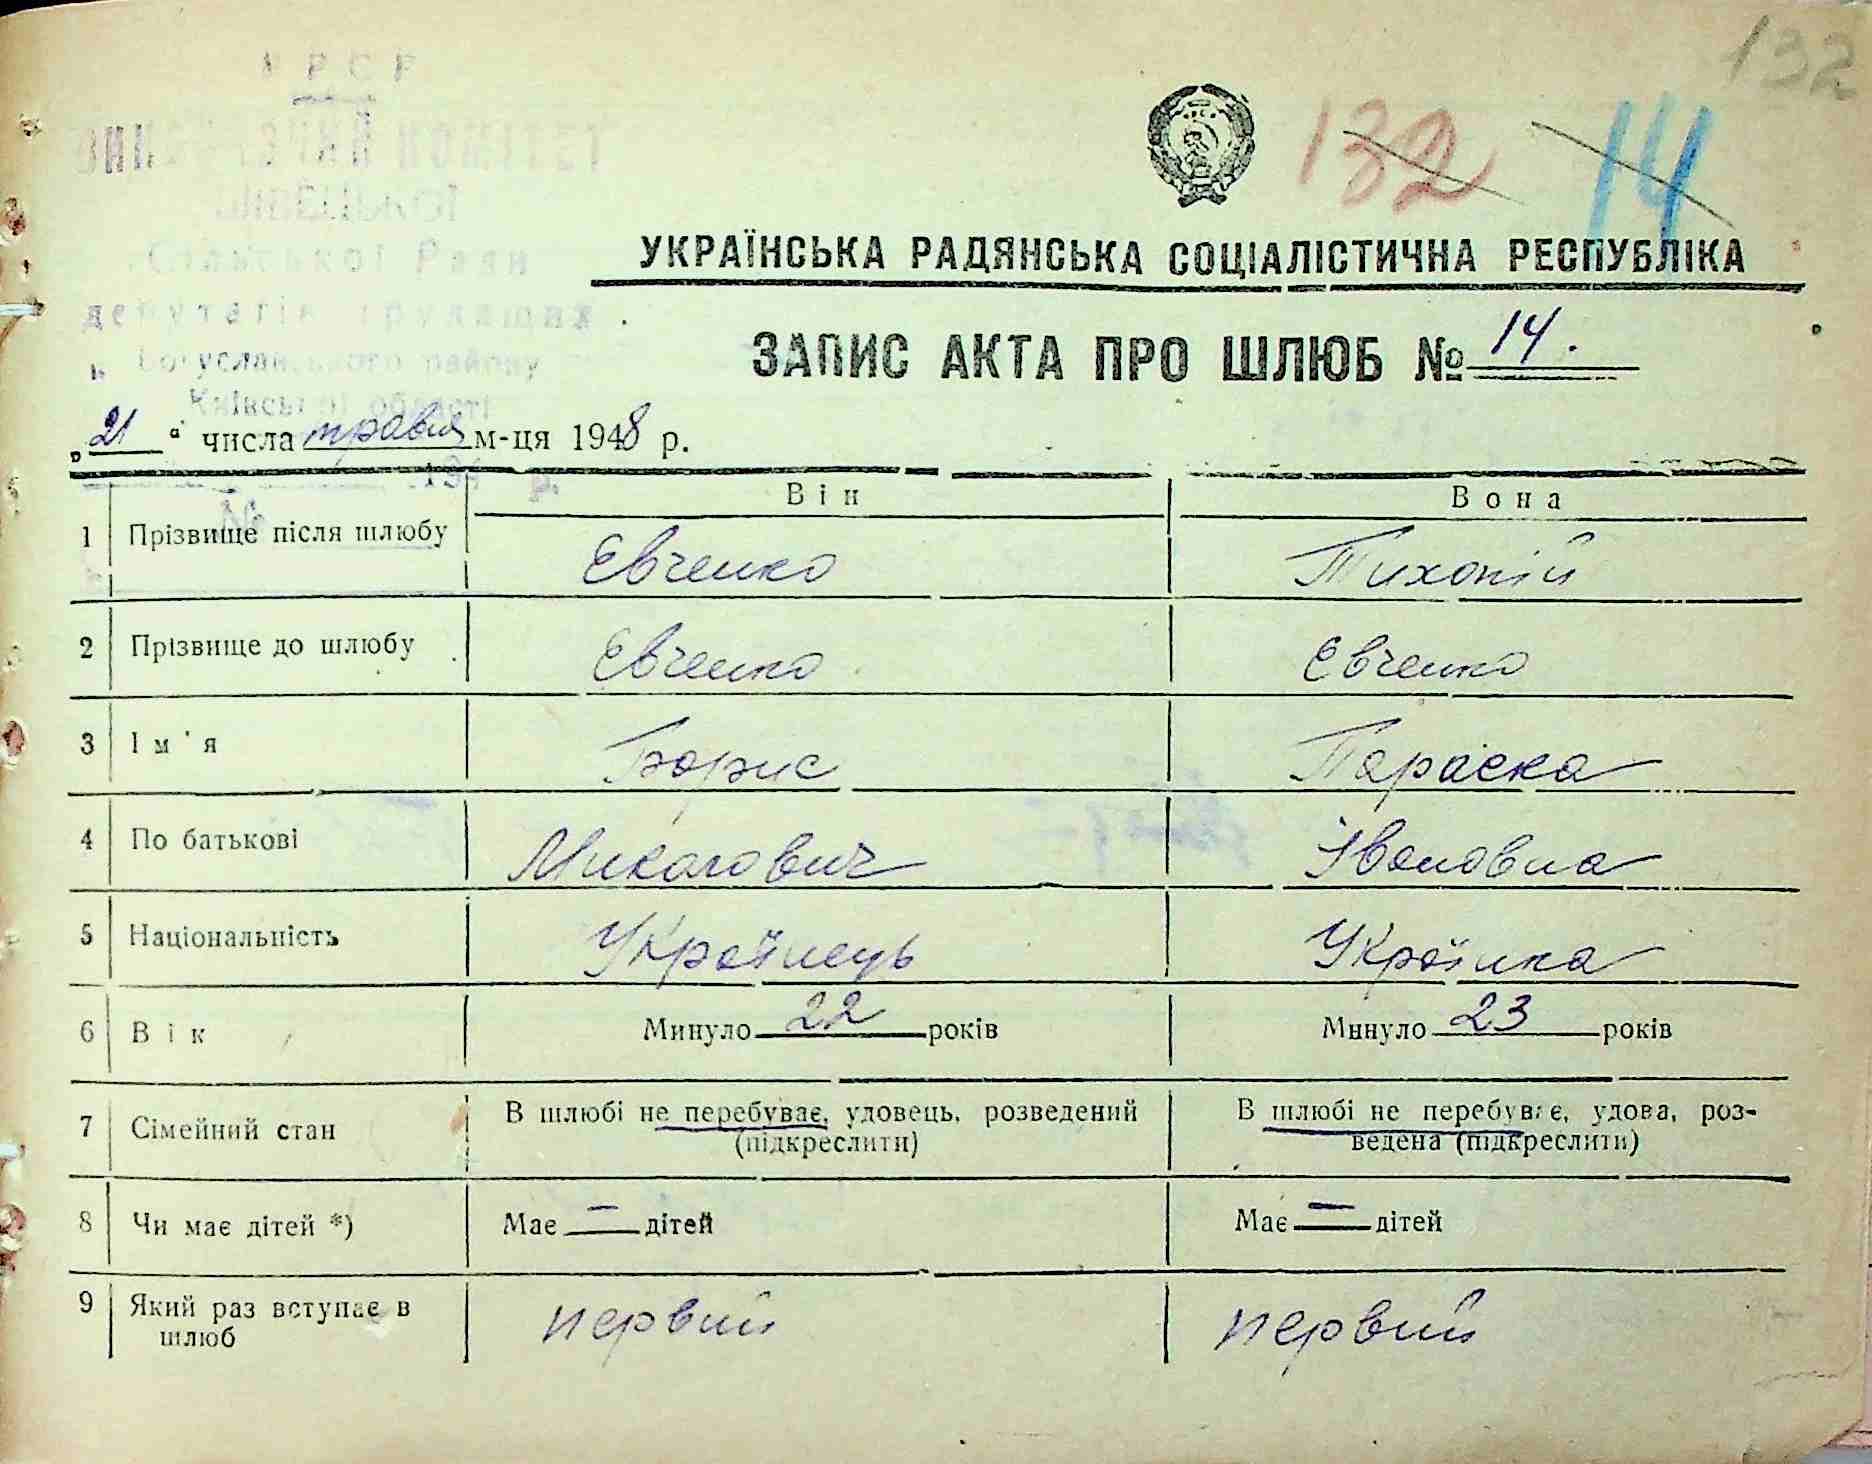 132
132 14
УРСР
ВИКОНАВЧИЙ КОМІТЕТ
Сільської Ради
депутатів трудящих
Богуславського району
Київської області
194 р.
№
УКРАЇНСЬКА РАДЯНСЬКА СОЦІАЛІСТИЧНА РЕСПУБЛІКА
ЗАПИС АКТА ПРО ШЛЮБ № 14.
„21“ числа травня м-ця 1948 р.
Він Вона
1 Прізвище після шлюбу Євченко Тихоній
2 Прізвище до шлюбу Євченко Євченко
3 Ім'я Борис Параска
4 По батькові Миколович Івановна
5 Національність Українець Українка
6 Вік Минуло 22 років Минуло 23 років
7 Сімейний стан В шлюбі не перебуває, удовець, розведений (підкреслити) В шлюбі не перебуває, удова, роз-
ведена (підкреслити)
8 Чи має дітей *) Має — дітей Має — дітей
9 Який раз вступає в шлюб первий первий